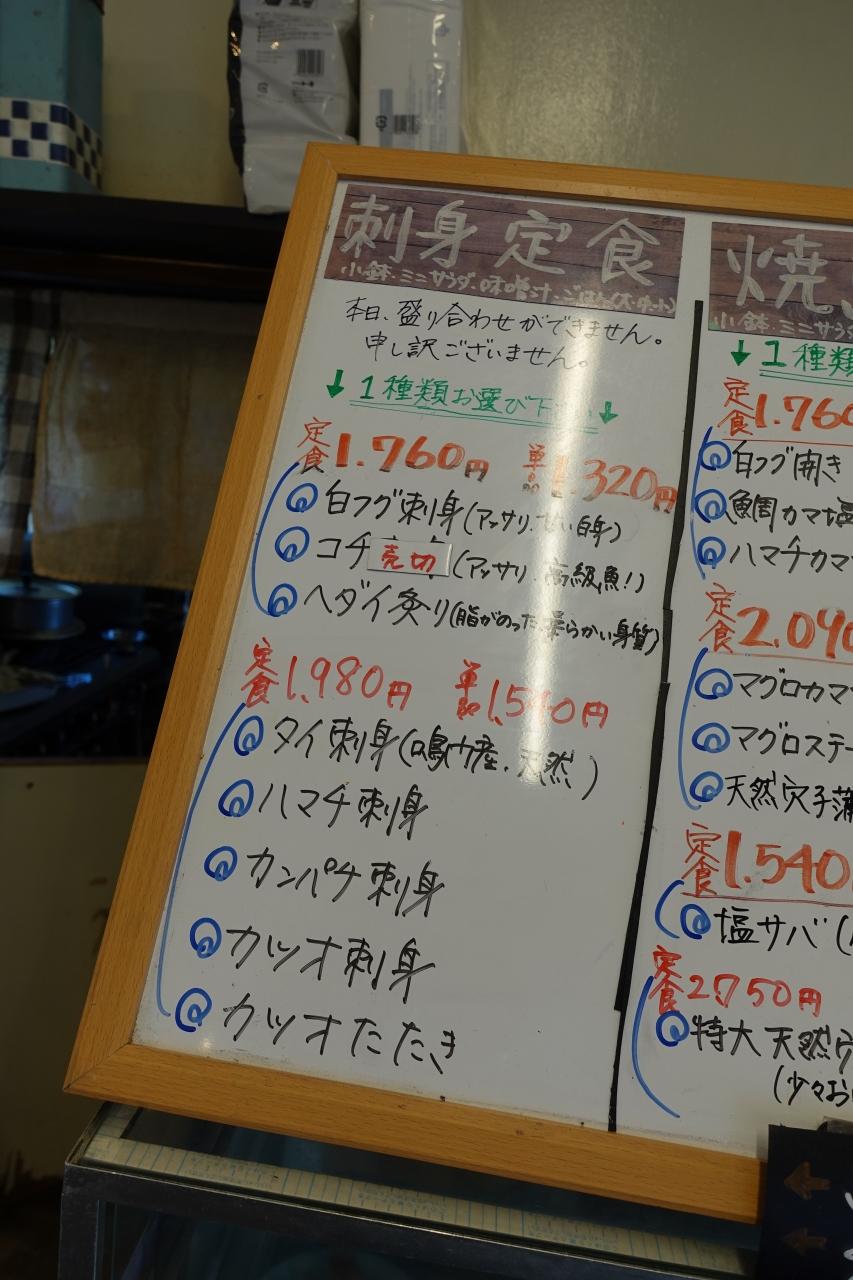 刺身定食
小鉢・ミニサラダ・味噌汁・ごはん(大・中・小)
本日、盛り合わせができません。
申し訳ございません。
↓1種類お選び下さい↓
定食1.760円 単品1.320円
白フグ刺身(アッサリ、甘い白身)
コチ 売切 (アッサリ、高級魚!)
ヘダイ炙り(脂がのった柔らかい身質)
定食1.980円 単品1.540円
タイ刺身(鳴門産、天然)
ハマチ刺身
カンパチ刺身
カツオ刺身
カツオたたき
焼
小鉢・ミニサラ
↓1種類
定食1.760
白フグ開き
鯛カマ塩
ハマチカマ
定食2.090
マグロカマ
マグロステー
天然穴子薄
定食1.540
塩サバ(
定食2750円
特大天然穴
(少々お